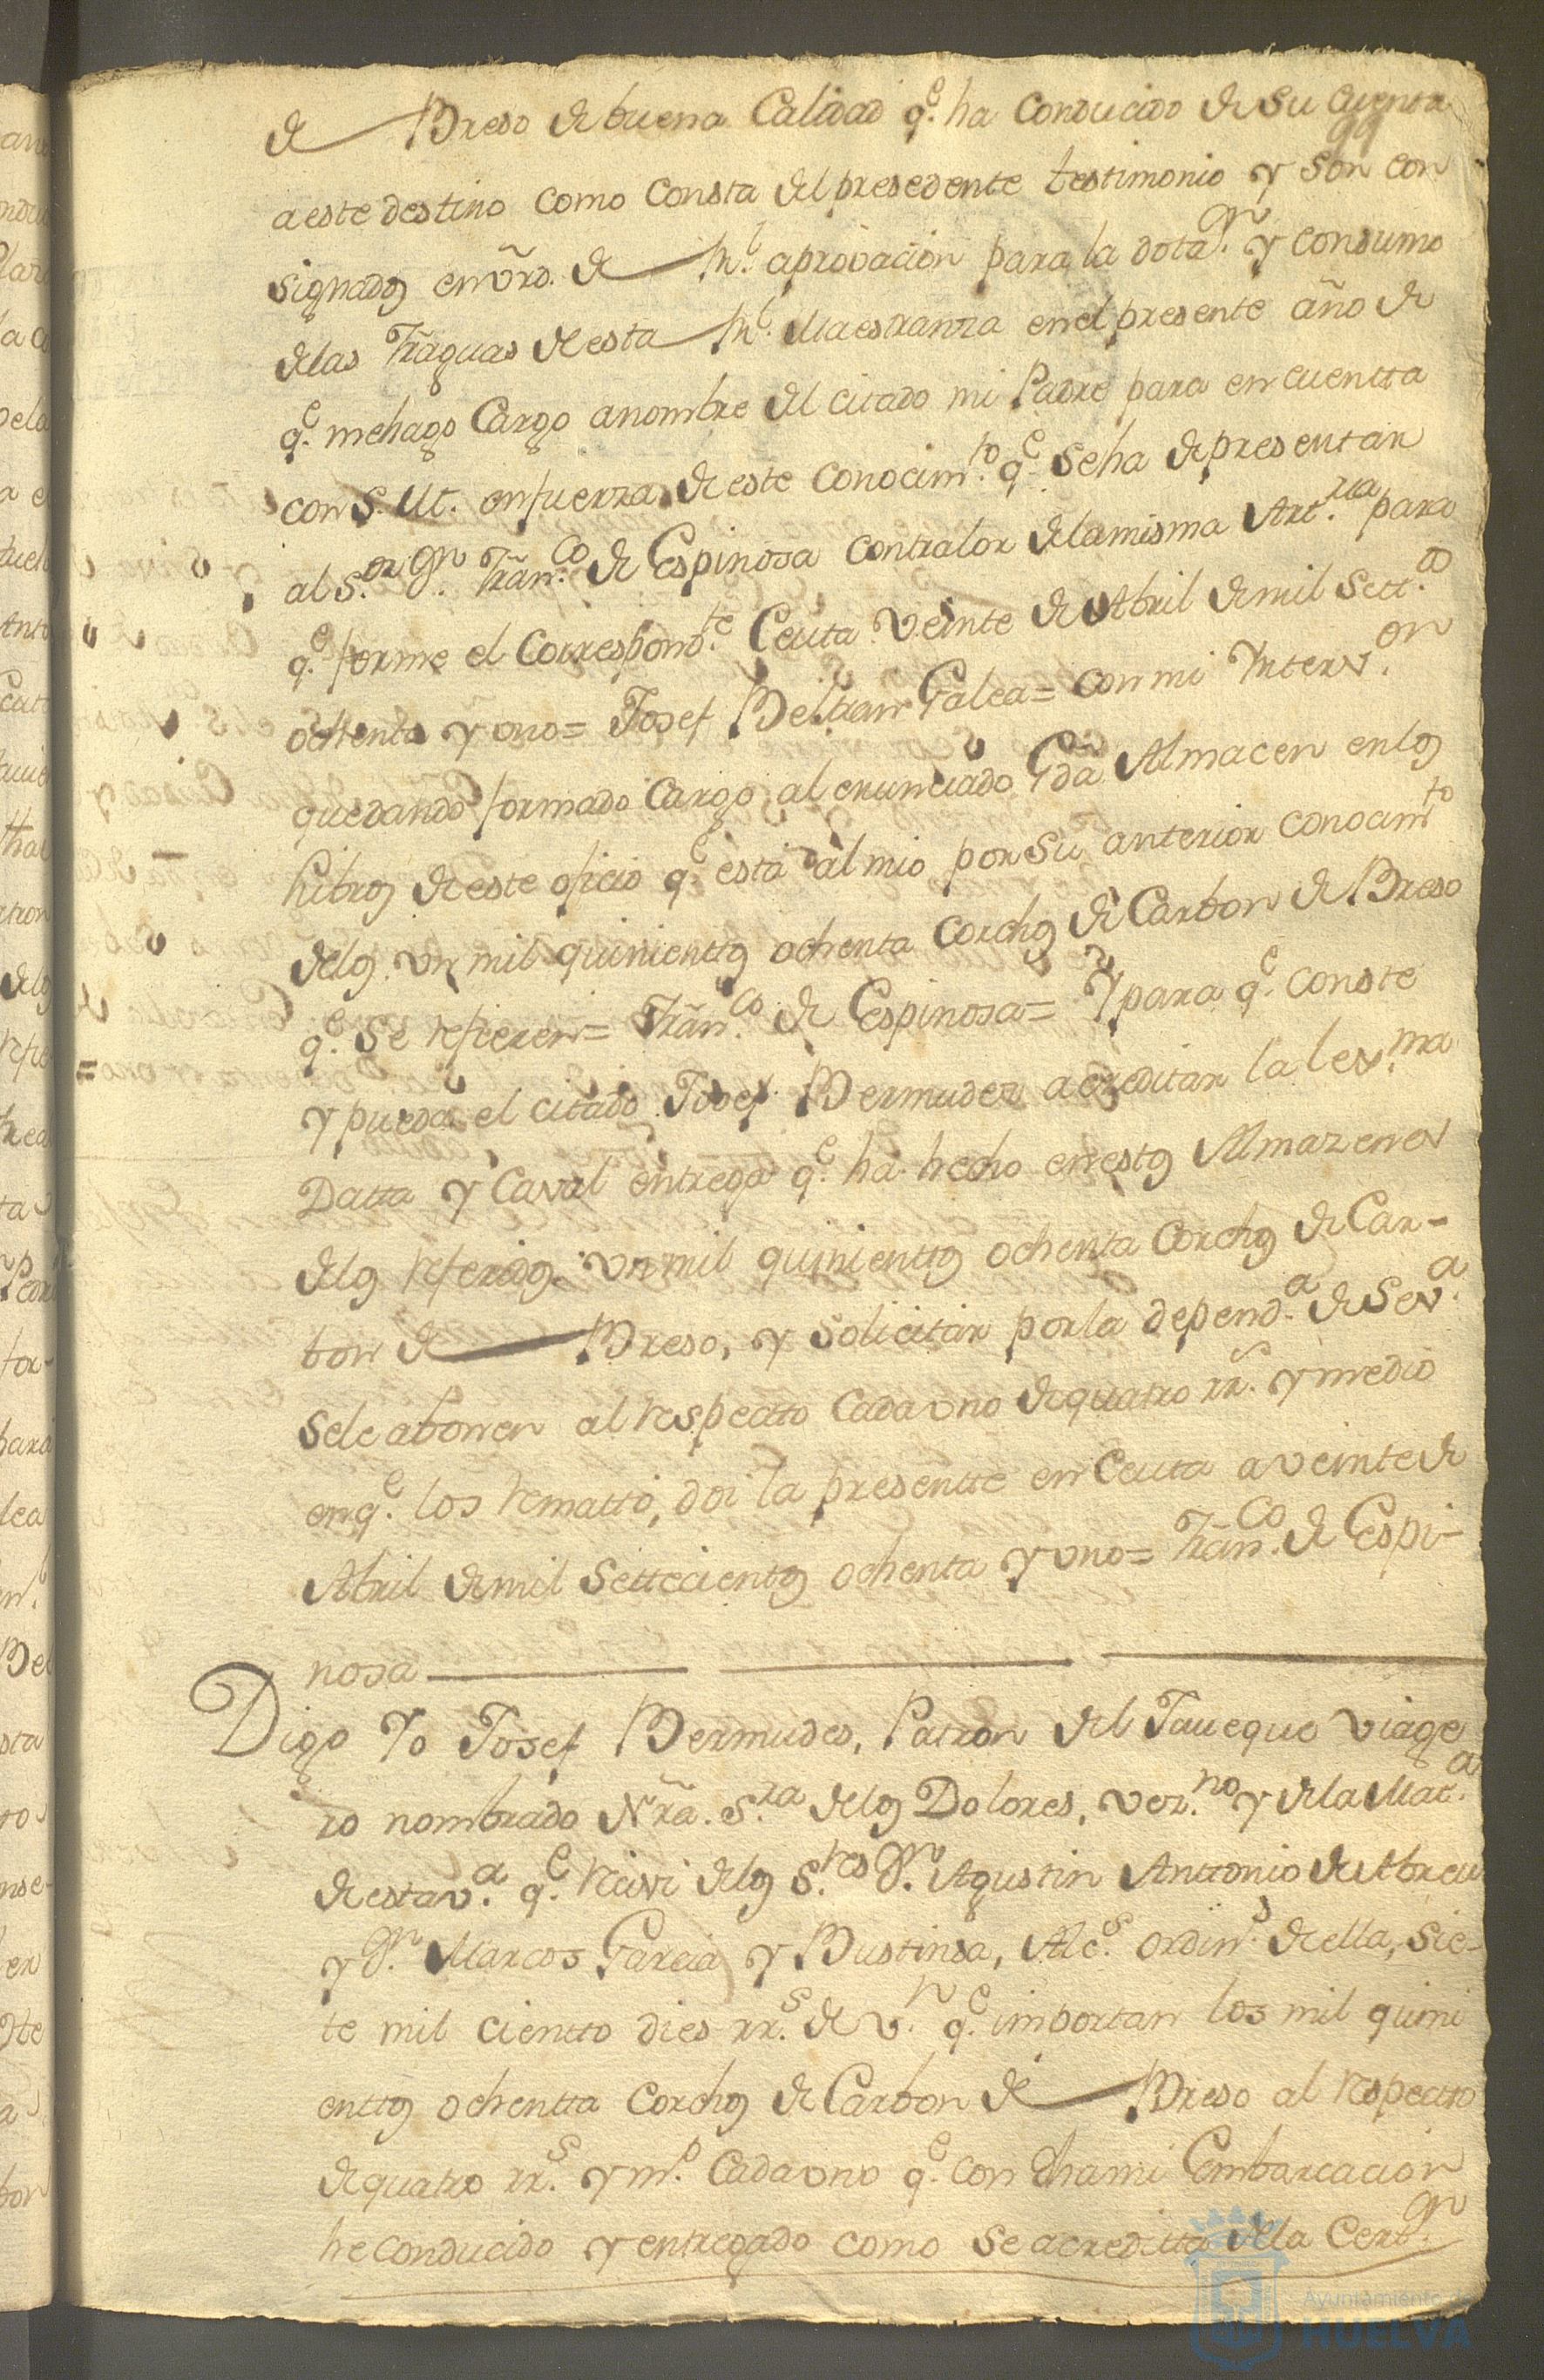 de Breso de buena Calidad q.e ha Conducido de su Cuenta
a este destino como Consta del presedente testimonio y son con
signados en vrd. de Rl. aprovacion para la dotan. y Consumo
de las Fraguas de esta Rl. Maestranza en el presente año de
q.e me hago Cargo a nombre del citado mi Padre para en cuentta
con S. M. en fuerza de este Conocim.to q.e se ha de presentar
al S.or Dn. Fran.co de Espinosa Contralor de la misma Art.ria para
q.e forme el Correspond.te Ceuta veinte de Abril de mil Sett.os
ochenta y uno= Josef Beltran Galea= Con mi Interv.on
quedando formado Cargo al enunciado Gda Almacen en los
Libros de este oficio q.e está al mio por su anterior Conocim.to
de los un mil quinienttos ochenta Corchos de Carbon de Breso
q.e se refieren= Fran.co de Espinosa= Y para q.e Conste
y pueda el citado Josef Bermudez acreditar la lex.ma
Datta y Caval entrega q.e ha hecho en estos Almazenes
de los referidos un mil quinienttos ochenta Corchos de Car-
bon de Breso, y solicitar por la depend.a de Sev.a
se le abonen al respectto Cada uno de quatro rr.s y medio
en q.e los rematto, doi la presentte en Ceuta a veinte de
Abril de mil Settecientos ochenta y uno= Fran.co de Espi-
nosa
Digo Yo Josef Bermudes, Patron del Javeque viage
ro nombrado Nra. S.ra de los Dolores, vez.no y de la Mat.a
de esta v.a q.e recivi de los S.res Dn. Agustin Anttonio de Abreu
y Dn. Marcos Garcia y Bustinsa, Alc.s ordin.s de ella, sie-
te mil cientto dies rr.s de v.n q.e importan los mil quini
enttos ochentta Corchos de Carbon de Breso al respectto
de quatro rr.s y m.o Cada uno q.e con dha mi Embarcacion
he conducido y entregado como se acreditta de la Certn.
Ayuntamiento de
HUELVA